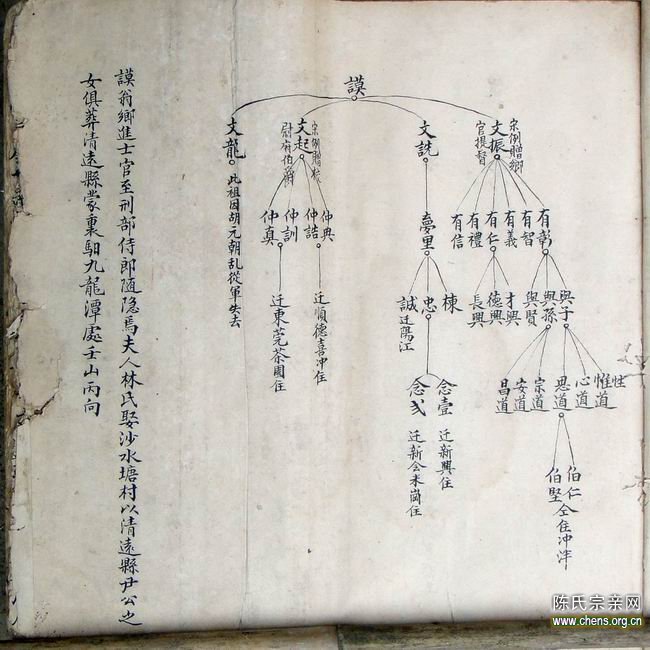 謨
文振
宋例贈鄉
官提督
文詵
文起
宋例贈校
尉府伯爵
文龍
此祖因胡元朝乱從軍失去
有彰
有智
有義
有仁
有禮
有信
夢里
仲典
仲誥
仲訓
仲真
與子
與孫
與賢
才興
億興
長興
棟
忠
誠迁陽江
迁順德喜冲住
迁東莞茶園住
性
惟道
心道
思道
宗道
安道
昌道
念壹
迁新興住
念弍
迁新会米崗住
伯仁
伯堅
仝住冲泮
謨翁鄉進士官至刑部侍郎随隐焉夫人林氏娶沙水塘村以清遠縣尹公之
女俱葬清遠縣蒙裏馹九龍潭處壬山丙向
陈氏宗亲网
www.chens.org.cn